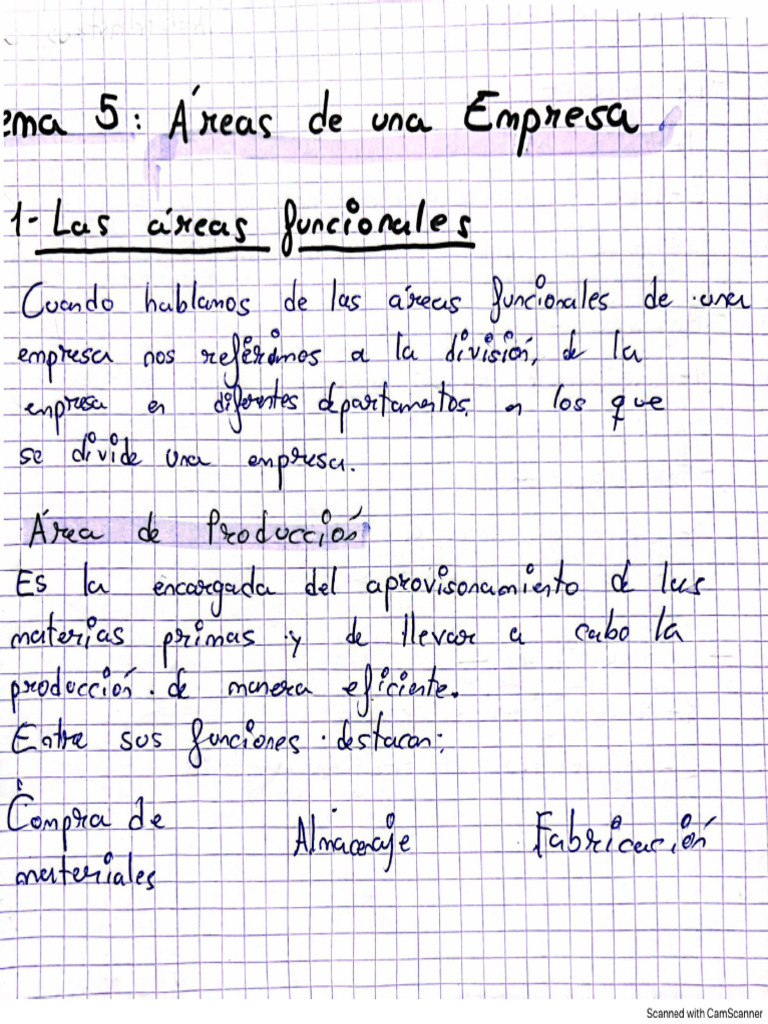 ema 5: Áreas de una Empresa.
1- Las áreas funcionales
Cuando hablamos de las áreas funcionales de una
empresa nos referimos a la división, de la
empresa en diferentes departamentos, en los que
se divide una empresa.
Área de Producción
Es la encargada del aprovisonamiento de las
materias primas y de llevar a cabo la
producción de manera eficiente.
Entre sus funciones destacan:
Compra de materiales
Almacenaje
Fabricación
Scanned with CamScanner